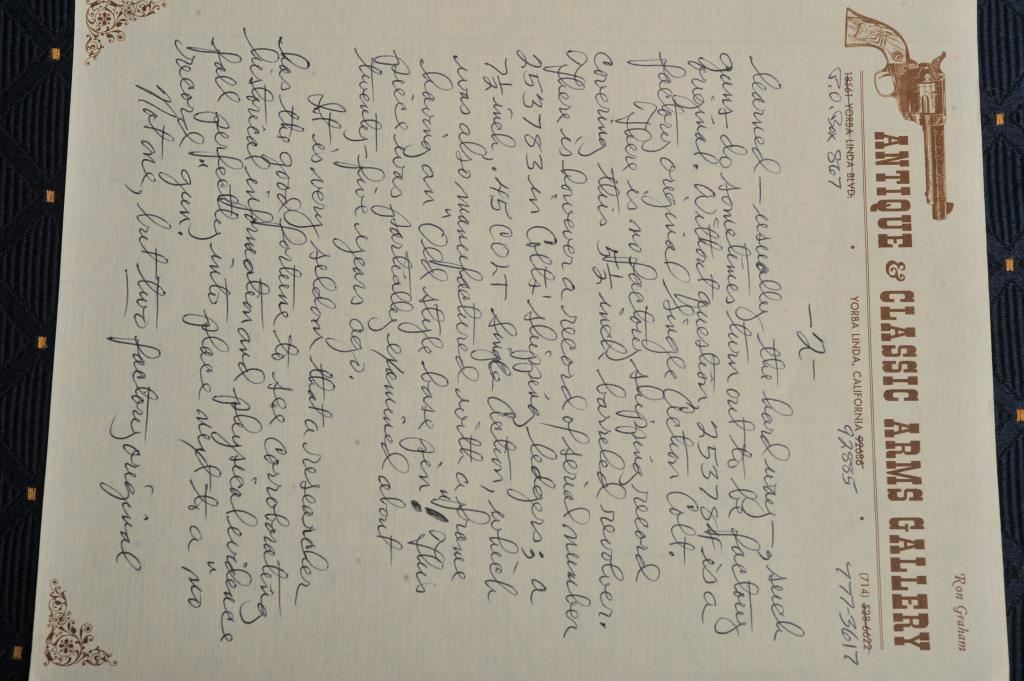 Ron Graham
ANTIQUE & CLASSIC ARMS GALLERY
18561 YORBA LINDA BLVD. • YORBA LINDA, CALIFORNIA 92686 • (714) 528-6622
P.O. Box 867 92885 777-3617
-2-
learned — usually the hard way —, such
guns do sometimes turn out to be factory
original. Without question, 253784 is a
factory original Single Action Colt.
There is no factory shipping record
covering this 4½ inch barreled revolver.
There is however a record of serial number
253783 in Colts' shipping ledgers; a
7½ inch, .45 COLT Single Action, which
was also manufactured with a frame
having an "Old style base pin"! This
piece was partially examined about
twenty-five years ago.
It is very seldom that a researcher
has the good fortune to see corroborating
historical information and physical evidence
fall perfectly into place next to a "no
record" gun.
Not one, but two factory original